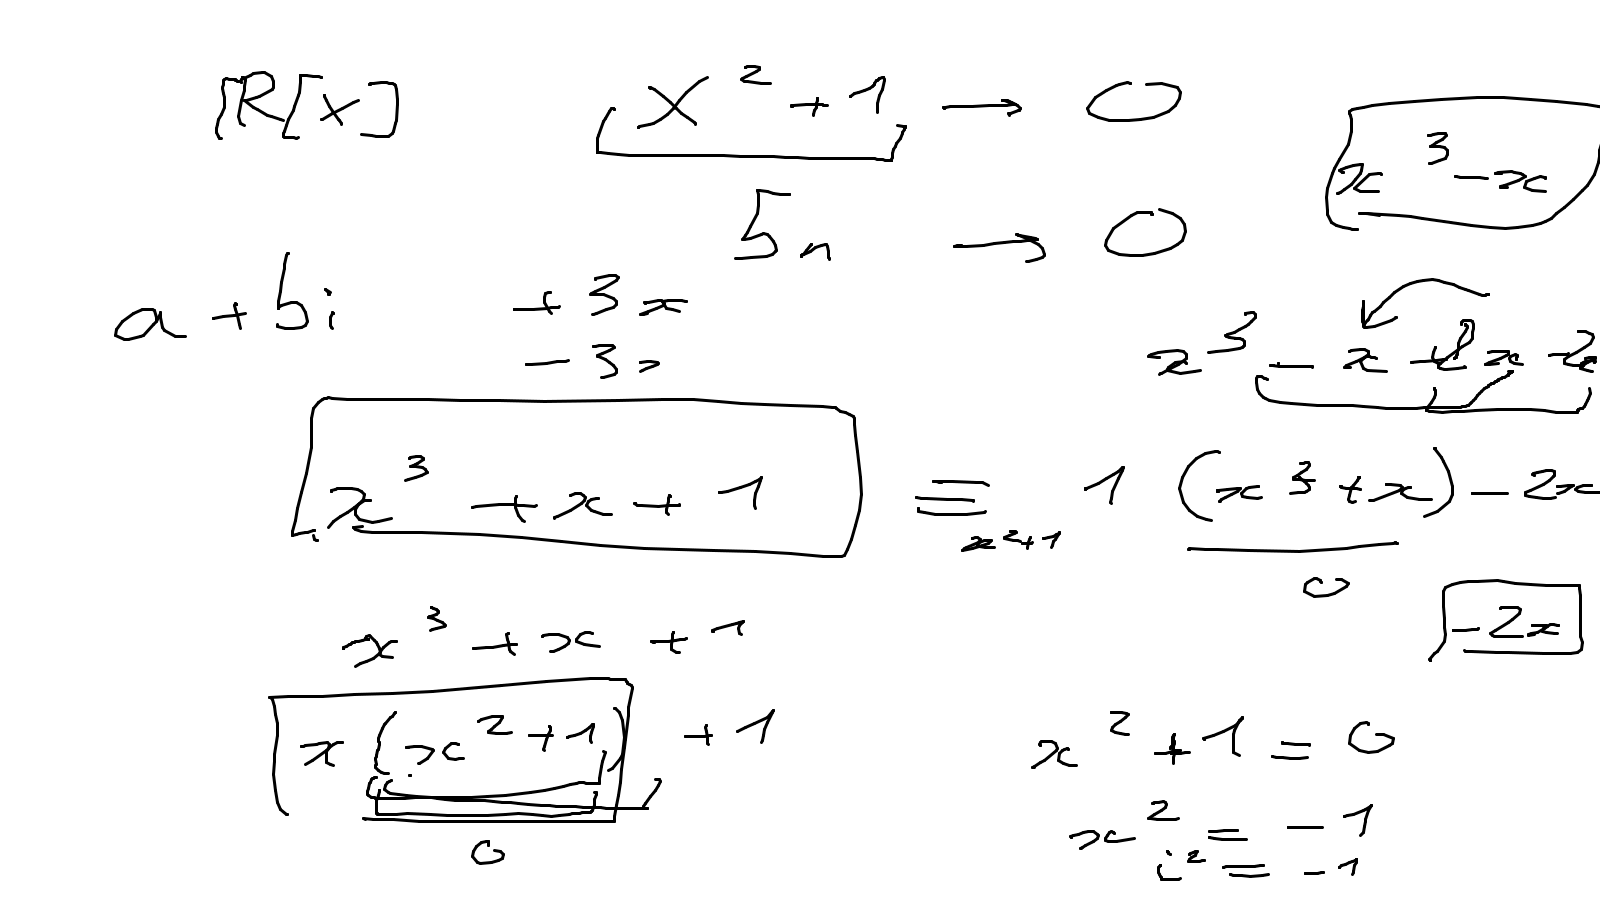 ℝ[x] x² + 1 → 0
x³ - x
5n → 0
a + bi + 3x
- 3
x³ - x
x³ + x + 1 ≡ 1 (x³ + x) - 2x
x² + 1
0
- 2x
x³ + x + 1
x (x² + 1) + 1
x² + 1 = 0
x² = - 1
0
i² = - 1